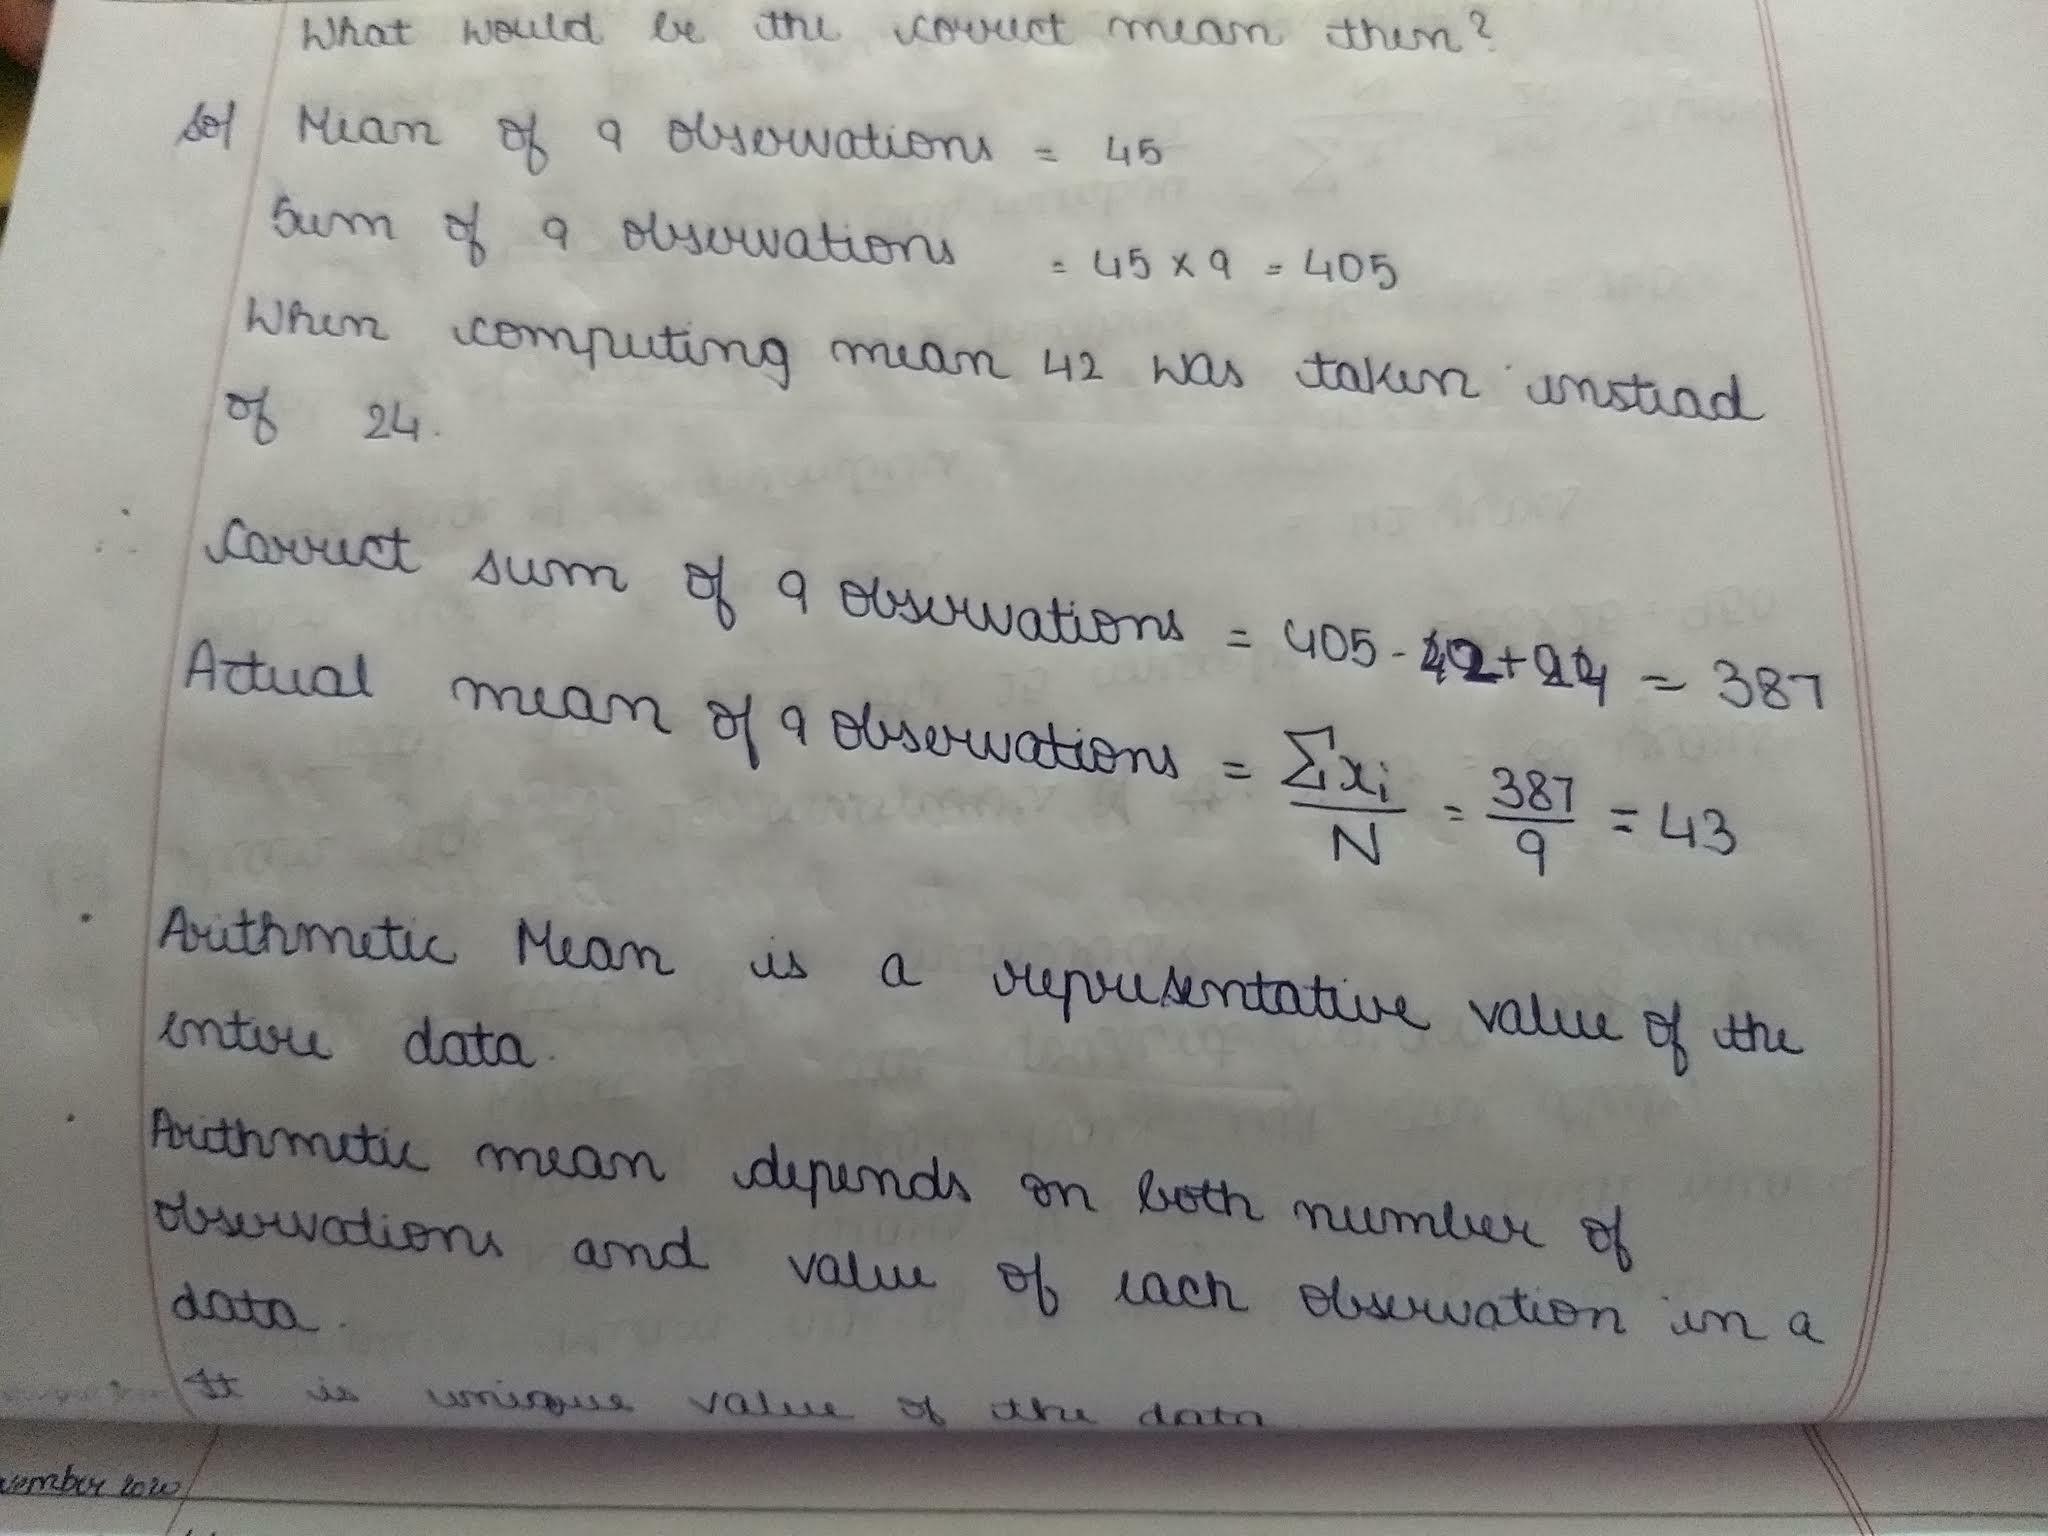 What would be the correct mean then?
Sol Mean of 9 observations = 45
Sum of 9 observations = 45 x 9 = 405
When computing mean 42 was taken instead
of 24.
Correct sum of 9 observations = 405 - 42 + 24 = 387
Actual mean of 9 observations = Σxi/N = 387/9 = 43
Arithmetic Mean is a representative value of the
entire data.
Arithmetic mean depends on both number of
observations and value of each observation in a
data.
It is unique value of the data
vember 2020